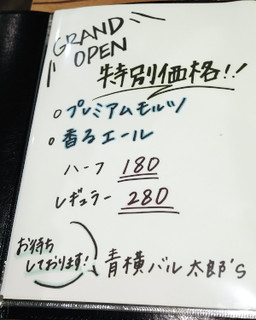 GRAND
OPEN
特別価格!!
○プレミアムモルツ
○香るエール
ハーフ 180
レギュラー 280
お待ち
しております!
青横バル太郎's